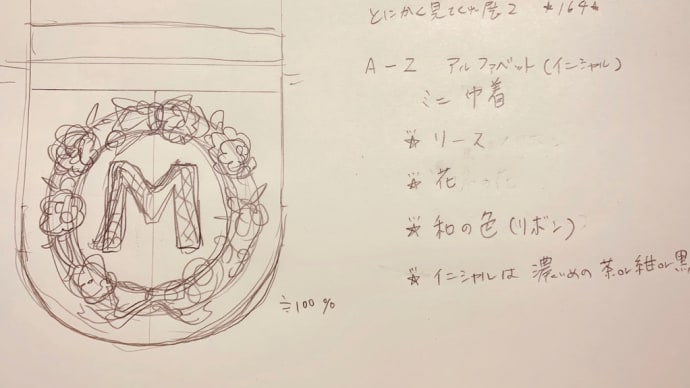 とにかく見てくれ展2 *164*
A-Z アルファベット(イニシャル)
ミニ巾着
* リース
* 花
* 和の色(リボン)
* イニシャルは濃いめの茶or紺or黒
M
≒100%